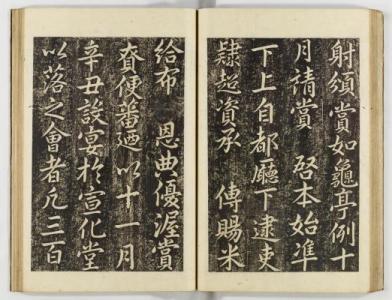 射須賞如龜亭例十
月請賞 啓本始準
下上自都廳下逮吏
肄超資承 傳賜米
給布 恩典優渥賞
賚便蕃廼以十一月
辛丑設宴於宣化堂
以落之會者凡三百